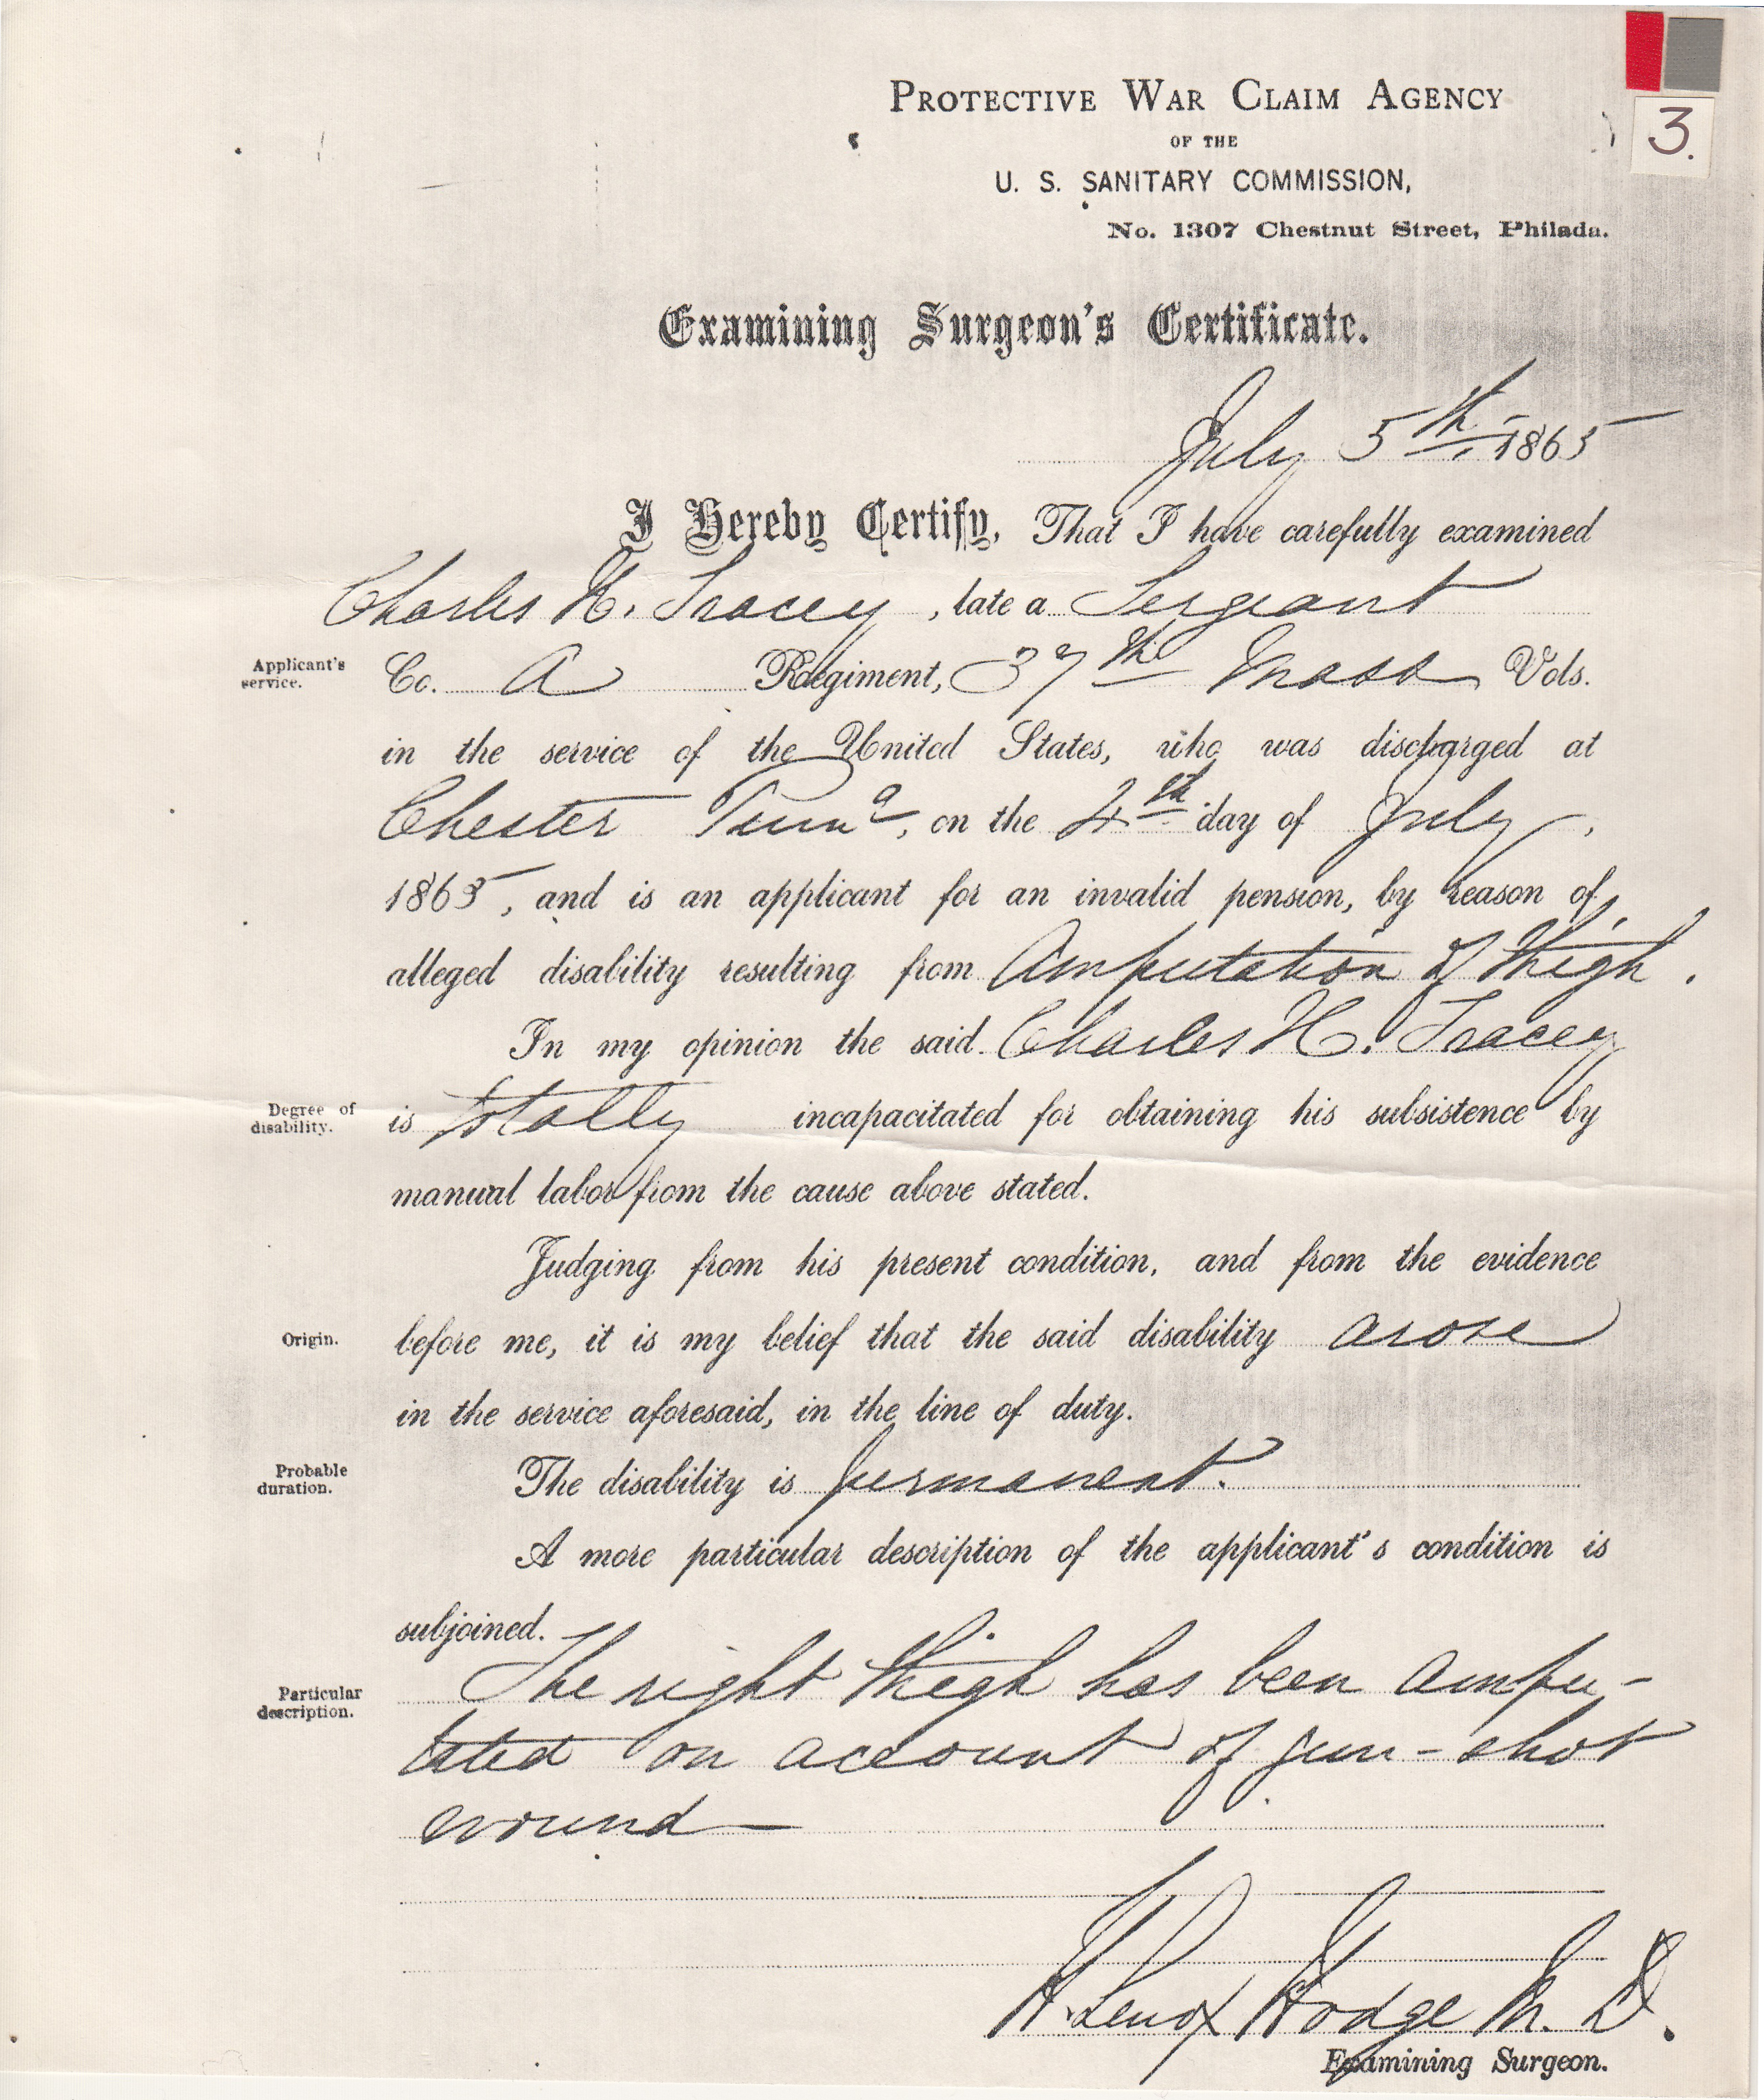 PROTECTIVE WAR CLAIM AGENCY
OF THE
U. S. SANITARY COMMISSION,
No. 1307 Chestnut Street, Philada.
3.
Examining Surgeon's Certificate.
July 5th, 1865
I Hereby Certify, That I have carefully examined
Charles H. Tracey, late a Sergeant
Applicant's service.
Co. A Regiment, 37th Mass Vols.
in the service of the United States, who was discharged at
Chester Penna, on the 4th day of July,
1865, and is an applicant for an invalid pension, by reason of
alleged disability resulting from Amputation of thigh.
In my opinion the said Charles H. Tracey
Degree of disability.
is totally incapacitated for obtaining his subsistence by
manual labor from the cause above stated.
Judging from his present condition, and from the evidence
Origin.
before me, it is my belief that the said disability arose
in the service aforesaid, in the line of duty.
Probable duration.
The disability is permanent.
A more particular description of the applicant's condition is
subjoined.
Particular description.
The right thigh has been ampu-
tated on account of gun-shot
wound
H. Lenox Hodge M. D.
Examining Surgeon.